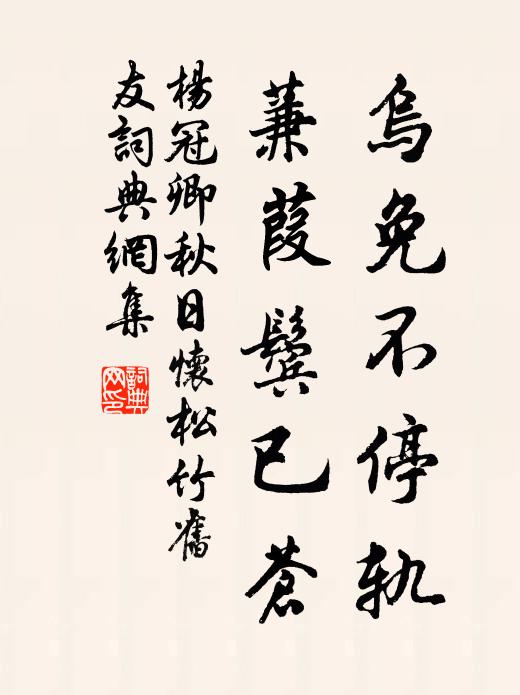 烏兔不停軌
蒹葭鬢已蒼
楊冠卿秋日懷松竹舊
友詞典網集
詞典
网印